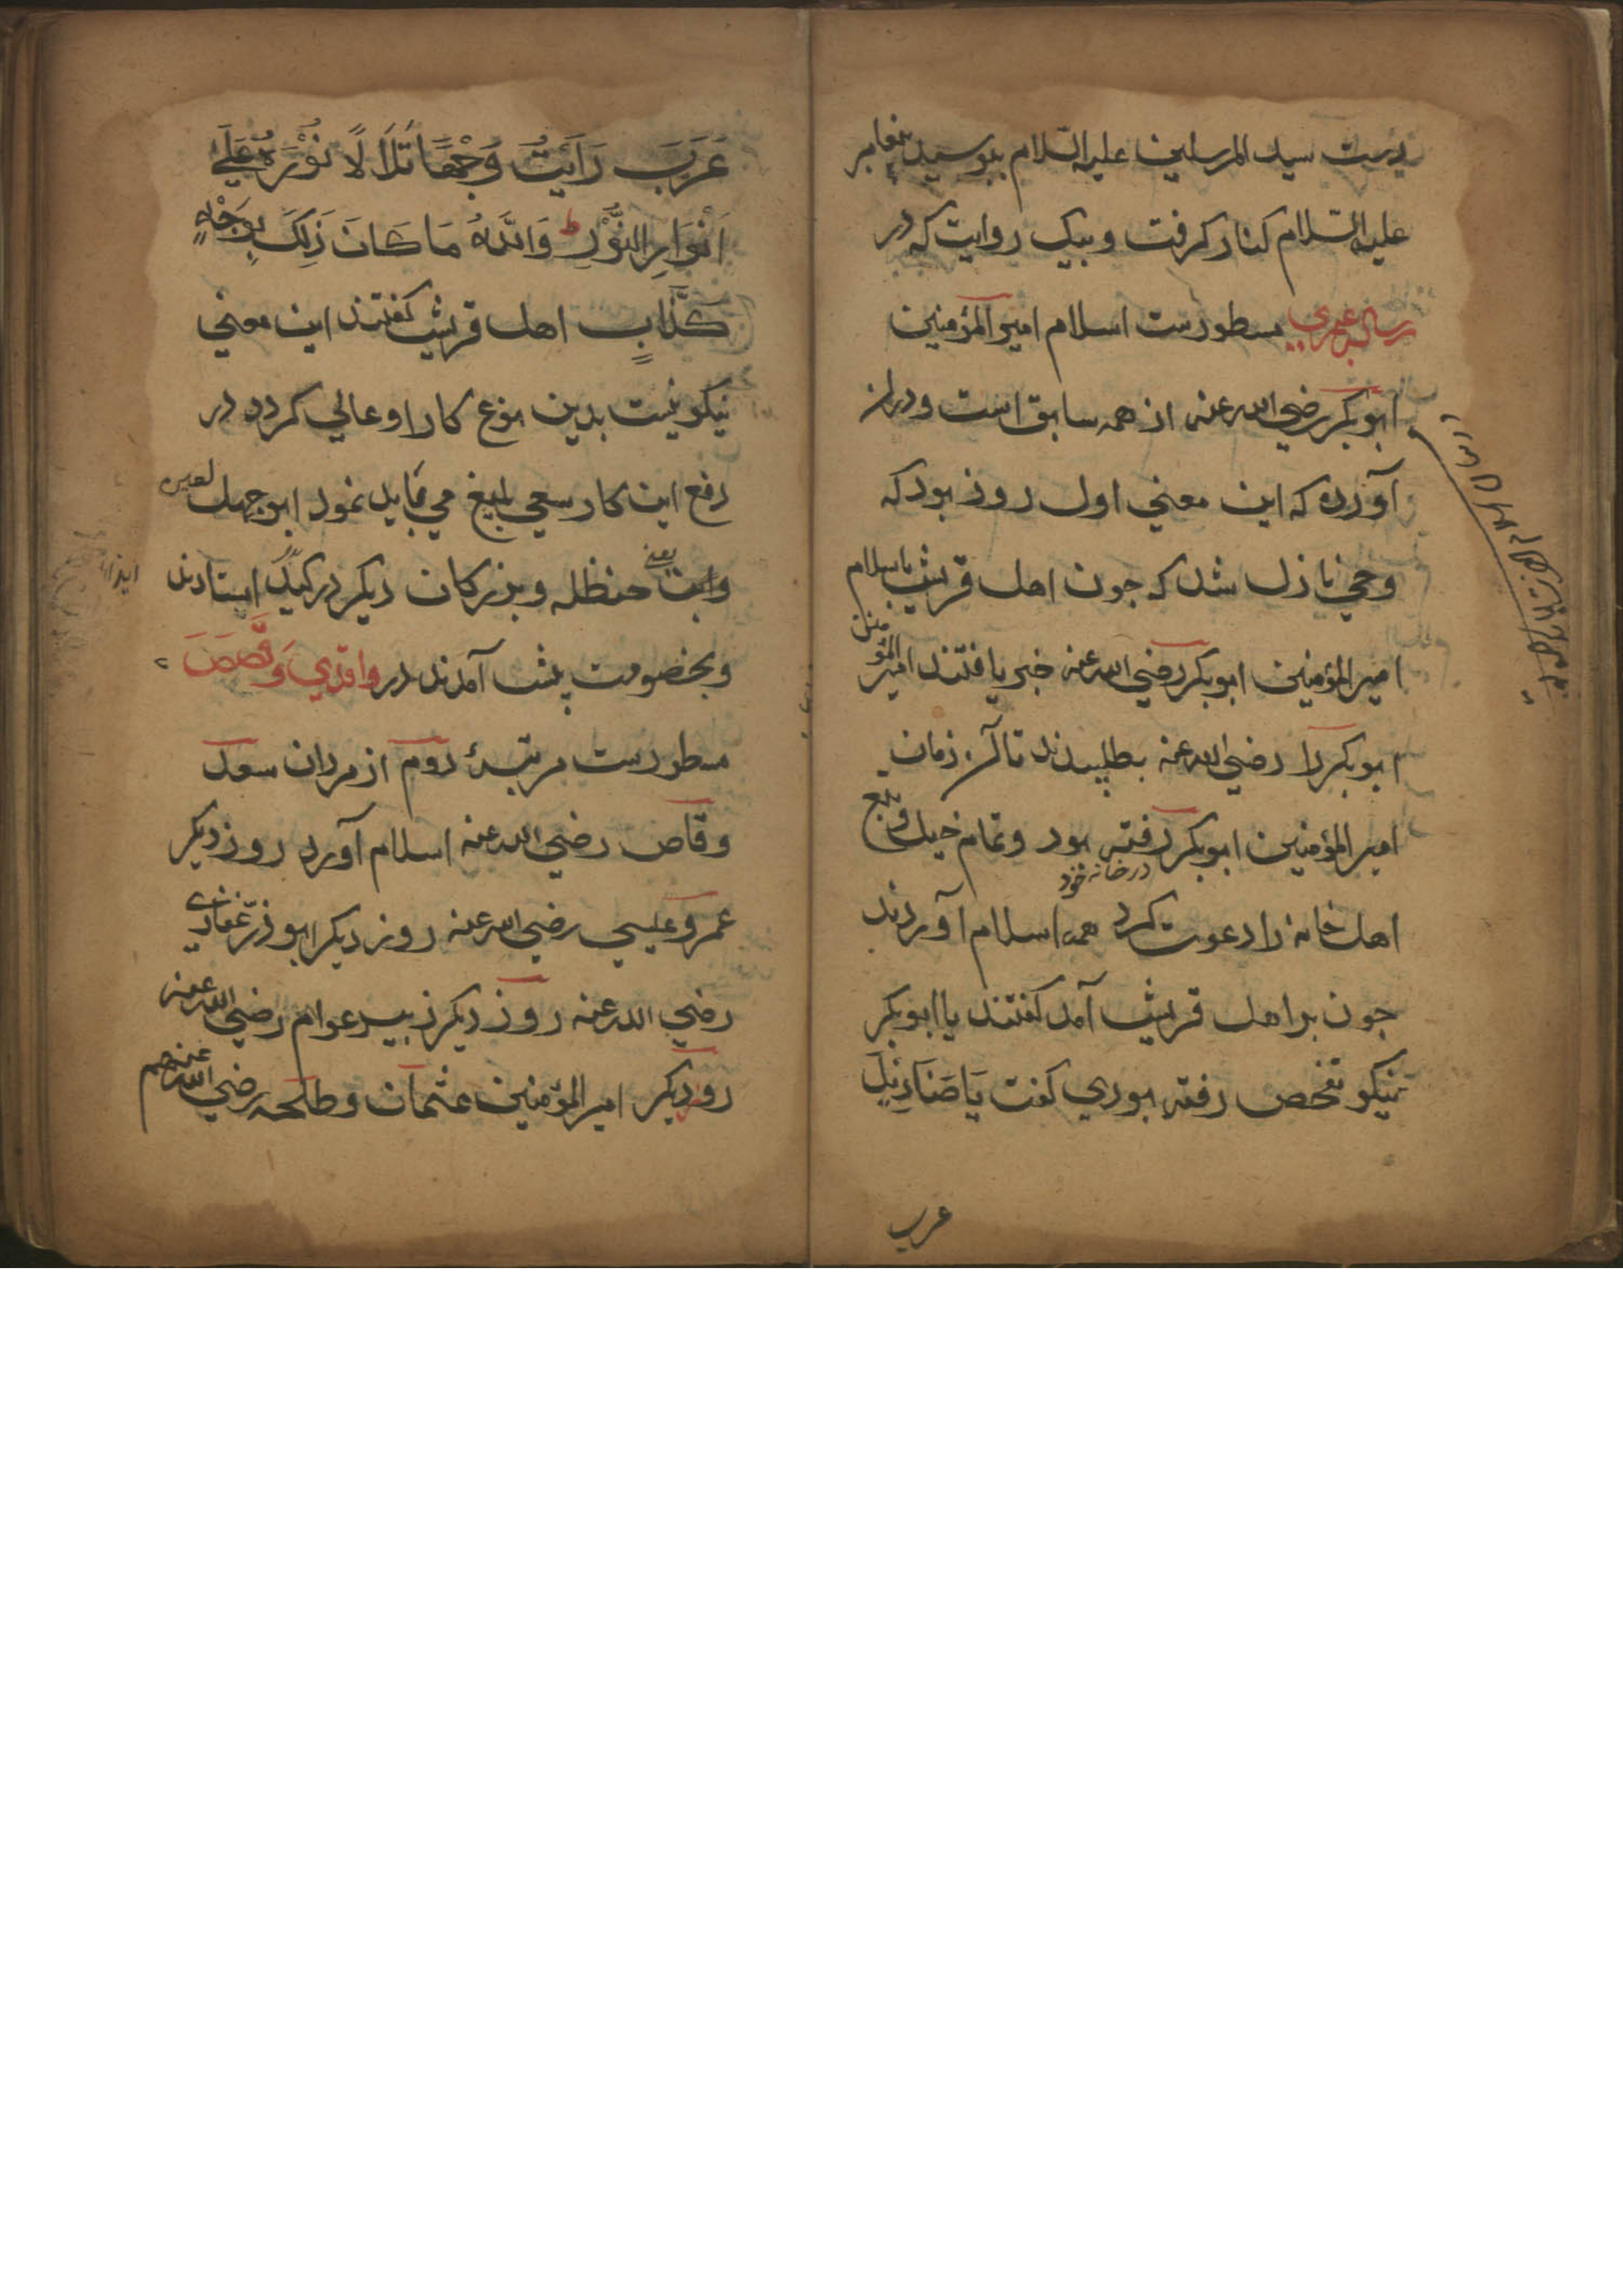 دست سید المرسلین علیه السّلام ببوسید پیغامبر
علیه السّلام کنار کرفت و بیک روایت که در
رساله عمری مسطورست اسلام امیر المؤمنین
ابوبکر رضی الله عنه از همه سابق است و دران
آورده که این معنی اول روز بود که
وحی نازل شد که جون اهل قریش باسلام
امیر المؤمنین ابوبکر رضی الله عنه خبر یافتند امیر المؤمنین
ابوبکر را رضی الله عنه بطلبیدند تا آن زمان
امیر المؤمنین ابوبکر رفته بود و تمام خیل و تبع
در خانه خود
اهل خانه را دعوت کرد همه اسلام آوردند
جون بر اهل قریش آمد کفتند یا ابوبکر
نیکو تفحص رفته بودی کفت یَا صَنَادِیدَ
عرب
عَرَبَ رَاَیْتُ وَجْهًا تَلَاَلَا نُوْرُهُ عَلَی
اَنْوَارِ النُّوْرِ ط وَاللّٰهُ مَا کَانَ ذٰلِکَ بِوَجْهِ
کَذَّابٍ اهل قریش کفتند این معنی
نیکو نیست بدین نوع کار او عالی کردد در
دفع این کار سعی بلیغ می باید نمود ابوجهل لعین
و ابن حنظله و بزرکان دیکر در کید استادند
و بخصومت پیش آمدند در واقدی و قصص
مسطورست مرتبهٔ دوم از مردان سعد
وقاص رضی الله عنه اسلام آورد روز دیکر
عمرو عیسی رضی الله عنه روز دیکر ابو ذر غفاری
رضی الله عنه روز دیکر زبیر عوام رضی الله عنه
روز دیکر امیر المؤمنین عثمان و طلحه رضی الله عنهم